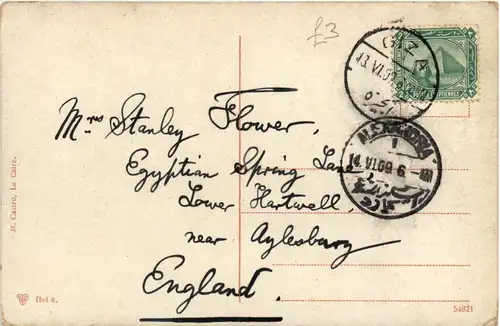 £3
GIZA
13 VI.09
Mrs Stanley Flower,
Egyptian Spring Lane
Lower Hartwell,
near Aylesbury
England.
ALEXANDRIA
I
14.VI.09 6-
M. Castro, Le Caire.
Hel 6.
54821